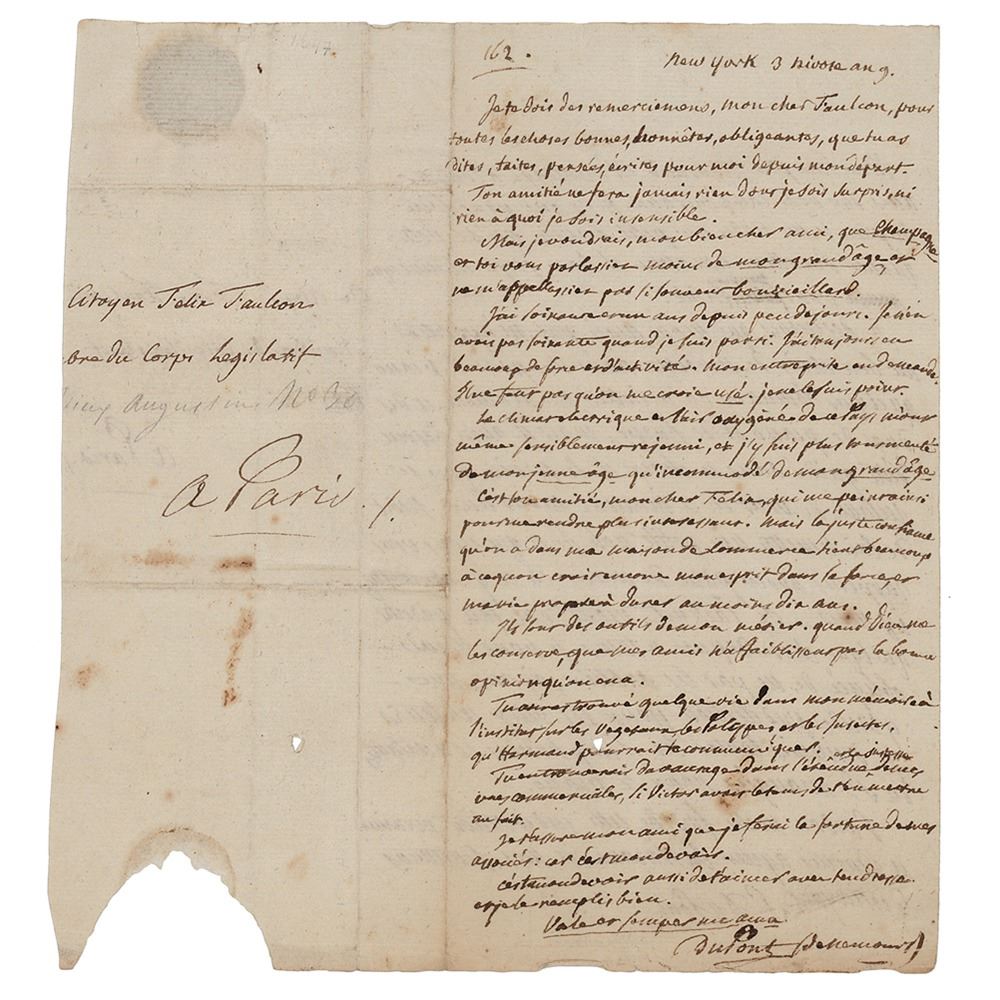 162.
New York 3 nivose an 9.
Je te dois des remerciemens, mon cher Faulcon, pour
toutes les choses bonnes, honnêtes, obligeantes, que tu as
dites, faites, pensées, écrites pour moi depuis mon départ.
Ton amitié ne fera jamais rien dont je sois surpris, ni
rien à quoi je sois insensible.
Mais je voudrais, mon bien cher ami, que Champagne
et toi vous parlassiez moins de mon grand âge et
ne m'appellassiez pas si souvent bon vieillard.
J'ai soixante et un ans depuis peu de jours. Je n'en
avais pas soixante quand je suis parti. J'ai toujours eu
beaucoup de force et d'activité. Mon entreprise en demande.
Il ne faut pas qu'on me croie usé. je ne le suis point.
Le climat électrique et l'air oxygéné de ce Pays m'ont
même sensiblement rajeuni, et j'y suis plus tourmenté
de mon jeune âge qu'incommodé de mon grand âge
C'est ton amitié, mon cher Félix, qui me peint ainsi
pour me rendre plus intéressant. Mais la juste confiance
qu'on a dans ma maison de Commerce tient beaucoup
à ce qu'on croit encore mon esprit dans la force, et
ma vie propre à durer au moins dix ans.
Ils sont des outils de mon métier. quand Dieu me
les conserve, que mes amis n'affaiblissent pas la bonne
opinion qu'on en a.
Tu auras trouvé quelque vie dans mon mémoire à
l'institut sur les Végétaux, les Polypes et les Insectes,
qu'Harmand pourrait te communiquer.
Tu en trouverais davantage dans l'étendue et la justesse de mes
vues commerciales, si Victor avait le tems de t'en mettre
au fait.
Je t'assure mon ami que je ferai la fortune de mes
associés: car c'est mon devoir.
C'est mon devoir aussi de t'aimer avec tendresse
et je le remplis bien.
Vale et semper me ama
DuPont (de Nemours)
Citoyen Felix Faulcon
bre du Corps Legislatif
Vieux Augustins No
a Paris./.